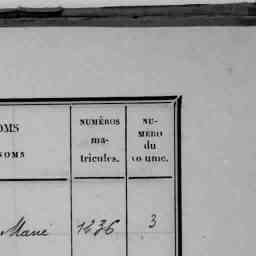 OMS
NOMS
NUMÉROS
ma-
tricules.
NU-
MERO
du
vo ume.
Marie 1236 3